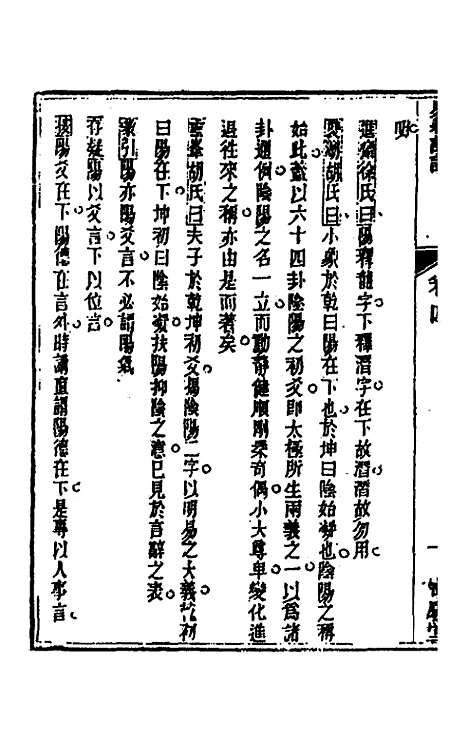 卷四
進齋徐氏曰陽釋龍字下釋潛字在下故潛潛故勿用
雙湖胡氏曰小象於乾曰陽在下也於坤曰陰始凝也陰陽之稱
始此蓋以六十四卦陰陽之初爻即太極所生兩義之一以為諸
卦通例陰陽之名一立而動靜健順剛柔奇偶小大尊卑變化進
退往來之稱亦由是而著矣
雲峯胡氏曰夫子於乾坤初爻揭陰陽二字以明易之大義乾初
曰陽在下坤初曰陰始凝扶陽抑陰之意已見於言辭之表
蒙引陽亦陽爻言不必謂陽氣
存疑陽以爻言下以位言
陽爻在下陽德在言外時講直謂陽德在下是專以人事言